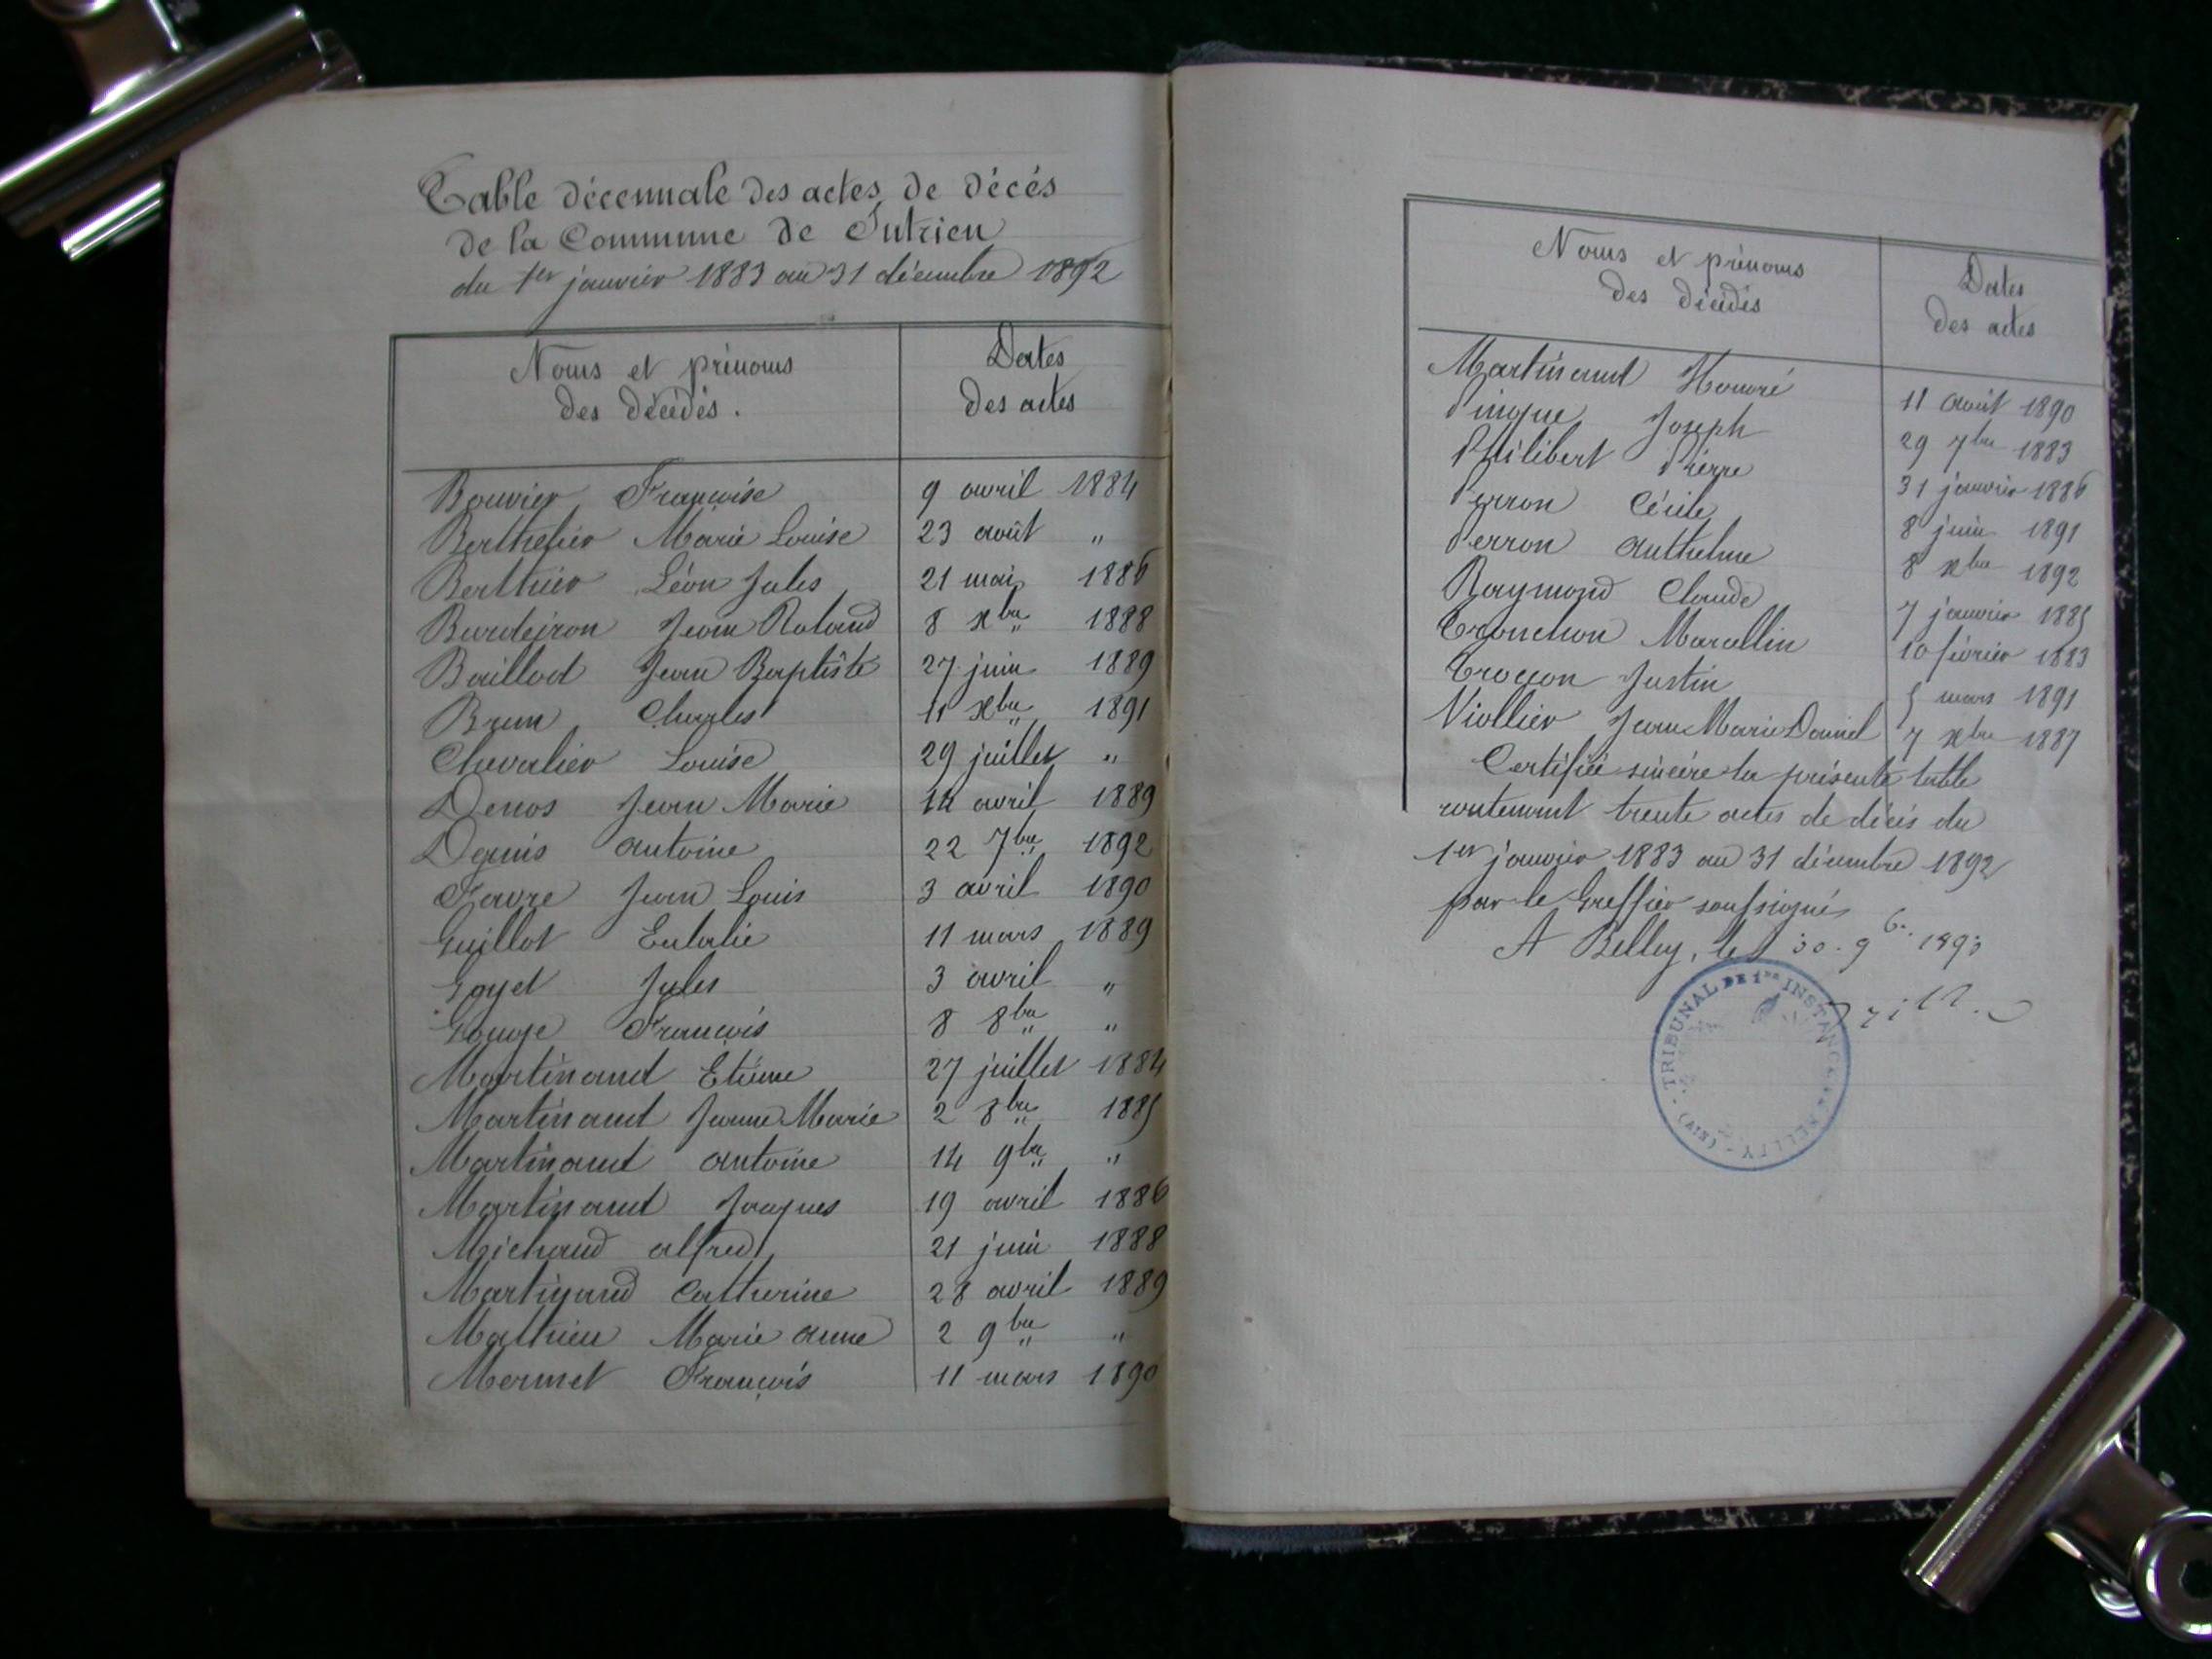 Table décennale des actes de décès
de la Commune de Sutrieu
du 1er janvier 1883 au 31 décembre 1892
Noms et prénoms
des décédés.
Dates
des actes
Bouvier Françoise 9 avril 1884
Berthelier Marie Louise 23 août "
Berthier Léon Jules 21 mai 1886
Burdeiron Jean Roland 8 xbre 1888
Baillod Jean Baptiste 27 juin 1889
Brun Charles 11 xbre 1891
Chevalier Louise 29 juillet "
Denos Jean Marie 14 avril 1889
Antoine 22 7bre 1892
Favre Jean Louis 3 avril 1890
Guillot Eulalie 11 mars 1889
Goyet Jules 3 avril "
François 8 8bre "
Martinand Etienne 27 juillet 1884
Martinand Jeanne Marie 2 8bre 1885
Martinand Antoine 14 9bre "
Martinand Jacques 19 avril 1886
Michaud Alfred 21 juin 1888
Martinand Catherine 28 avril 1889
Mathieu Marie Anne 2 9bre "
Mermet François 11 mars 1890
Noms et prénoms
des décédés
Dates
des actes
Martinand Honoré 11 août 1890
Pingue Joseph 29 7bre 1883
Philibert Pierre 31 janvier 1886
Perron Cécile 8 juin 1891
Perron Anthelme 8 xbre 1892
Raymond Claude 7 janvier 1885
Tronchon Marcellin 10 février 1883
Trocon Justin 5 mars 1891
Viollier Jean Marie Daniel 7 xbre 1887
Certifiée sincère la présente table
contenant trente actes de décès du
1er janvier 1883 au 31 décembre 1892
par le Greffier soussigné
A Belley, le 30 9bre 1893
TRIBUNAL DE 1RE INSTANCE BELLEY (AIN)